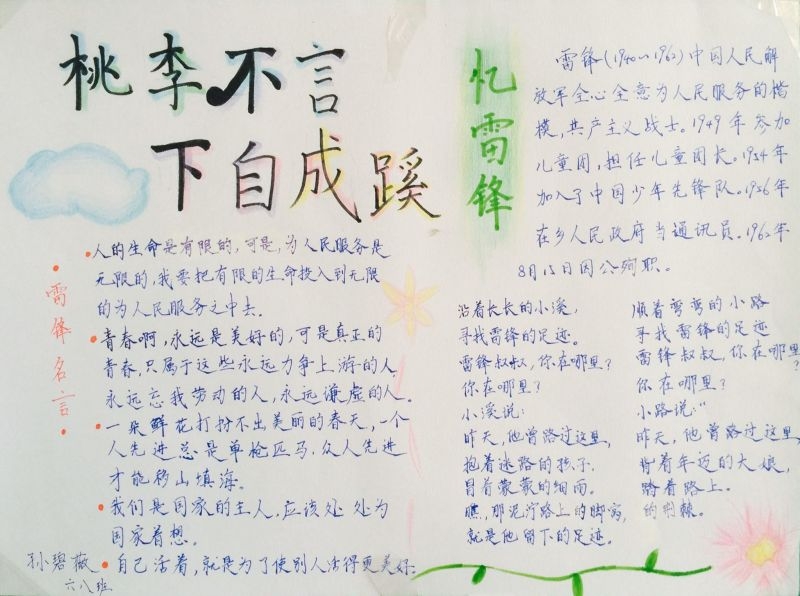 桃李不言
下自成蹊
雷锋名言
人的生命是有限的,可是,为人民服务是
无限的,我要把有限的生命投入到无限
的为人民服务之中去.
青春啊,永远是美好的,可是真正的
青春,只属于这些永远力争上游的人,
永远忘我劳动的人,永远谦虚的人。
一朵鲜花打扮不出美丽的春天,一个
人先进总是单枪匹马,众人先进
才能移山填海。
我们是国家的主人,应该处处为
国家着想。
自己活着,就是为了使别人活得更美好.
孙碧薇
六八班
忆雷锋
雷锋(1940~1962)中国人民解
放军全心全意为人民服务的楷
模,共产主义战士。1949年参加
儿童团,担任儿童团长。1954年
加入了中国少年先锋队。1956年
在乡人民政府当通讯员。1962年
8月15日因公殉职。
沿着长长的小溪,
寻找雷锋的足迹。
雷锋叔叔,你在哪里?
你在哪里?
小溪说:
昨天,他曾路过这里,
抱着迷路的孩子.
冒着蒙蒙的细雨。
瞧,那泥泞路上的脚窝,
就是他留下的足迹。
顺着弯弯的小路
寻找雷锋的足迹
雷锋叔叔,你在哪里?
你在哪里?
小路说:“
昨天,他曾路过这里,
背着年迈的大娘,
踏着路上.
的荆棘。